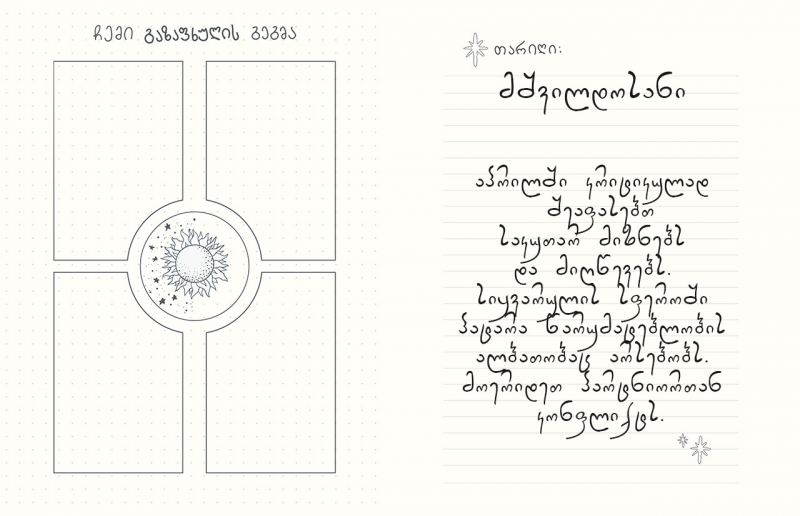 ჩემი გაზაფხულის გეგმა
თარიღი:
მშვილდოსანი
აპრილში კრიტიკულად
შეაფასებთ
საკუთარ მიზნებს
და მიღწევებს.
სიყვარულის სფეროში
პატარა წარუმატებლობის
ალბათობაც არსებობს.
მოერიდეთ პარტნიორთან
კონფლიქტს.